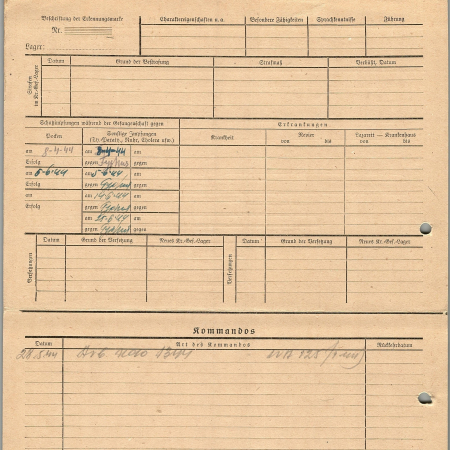 Beschriftung der Erkennungsmarke
Nr.
Lager:
Charaktereigenschaften u. a.
Besondere Fähigkeiten
Sprachkenntnisse
Führung
Strafen im Kr.-Gef.-Lager
Datum
Grund der Bestrafung
Strafmaß
Verbüßt, Datum
Schutzimpfungen während der Gefangenschaft gegen
Erkrankungen
Pocken
Sonstige Impfungen
(Ty.-Paraty., Ruhr, Cholera usw.)
Krankheit
Revier
von bis
Lazarett — Krankenhaus
von bis
am 8-4-44 am 8-4-44 am
Erfolg gegen Typhus gegen
am 5-6-44 am 5-6-44 am
Erfolg gegen Typhus gegen
am am 14-6-44 am
Erfolg gegen Typhus gegen
am am
gegen Typhus gegen
Versetzungen
Datum
Grund der Versetzung
Neues Kr.-Gef.-Lager
Versetzungen
Datum
Grund der Versetzung
Neues Kr.-Gef.-Lager
Kommandos
Datum
Art des Kommandos
Rückkehrdatum
28.5.44 Arb. 1344